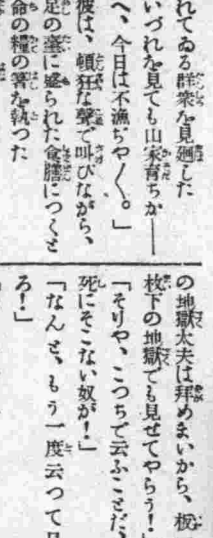 れてゐる群衆を見廻した
いづれを見ても山家育ちか――
へ、今日は不漁ぢや〳〵。」
彼は、頓狂な聲で叫びながら、
足の臺に盛られた食膳につくと
命の糧の箸を執つた
の地獄太夫は拜めまいから、板
枚下の地獄でも見せてやらう!」
「そりや、こつちで云ふことだ、
死にそこない奴が!」
「なんと、もう一度云つて見
ろ!」